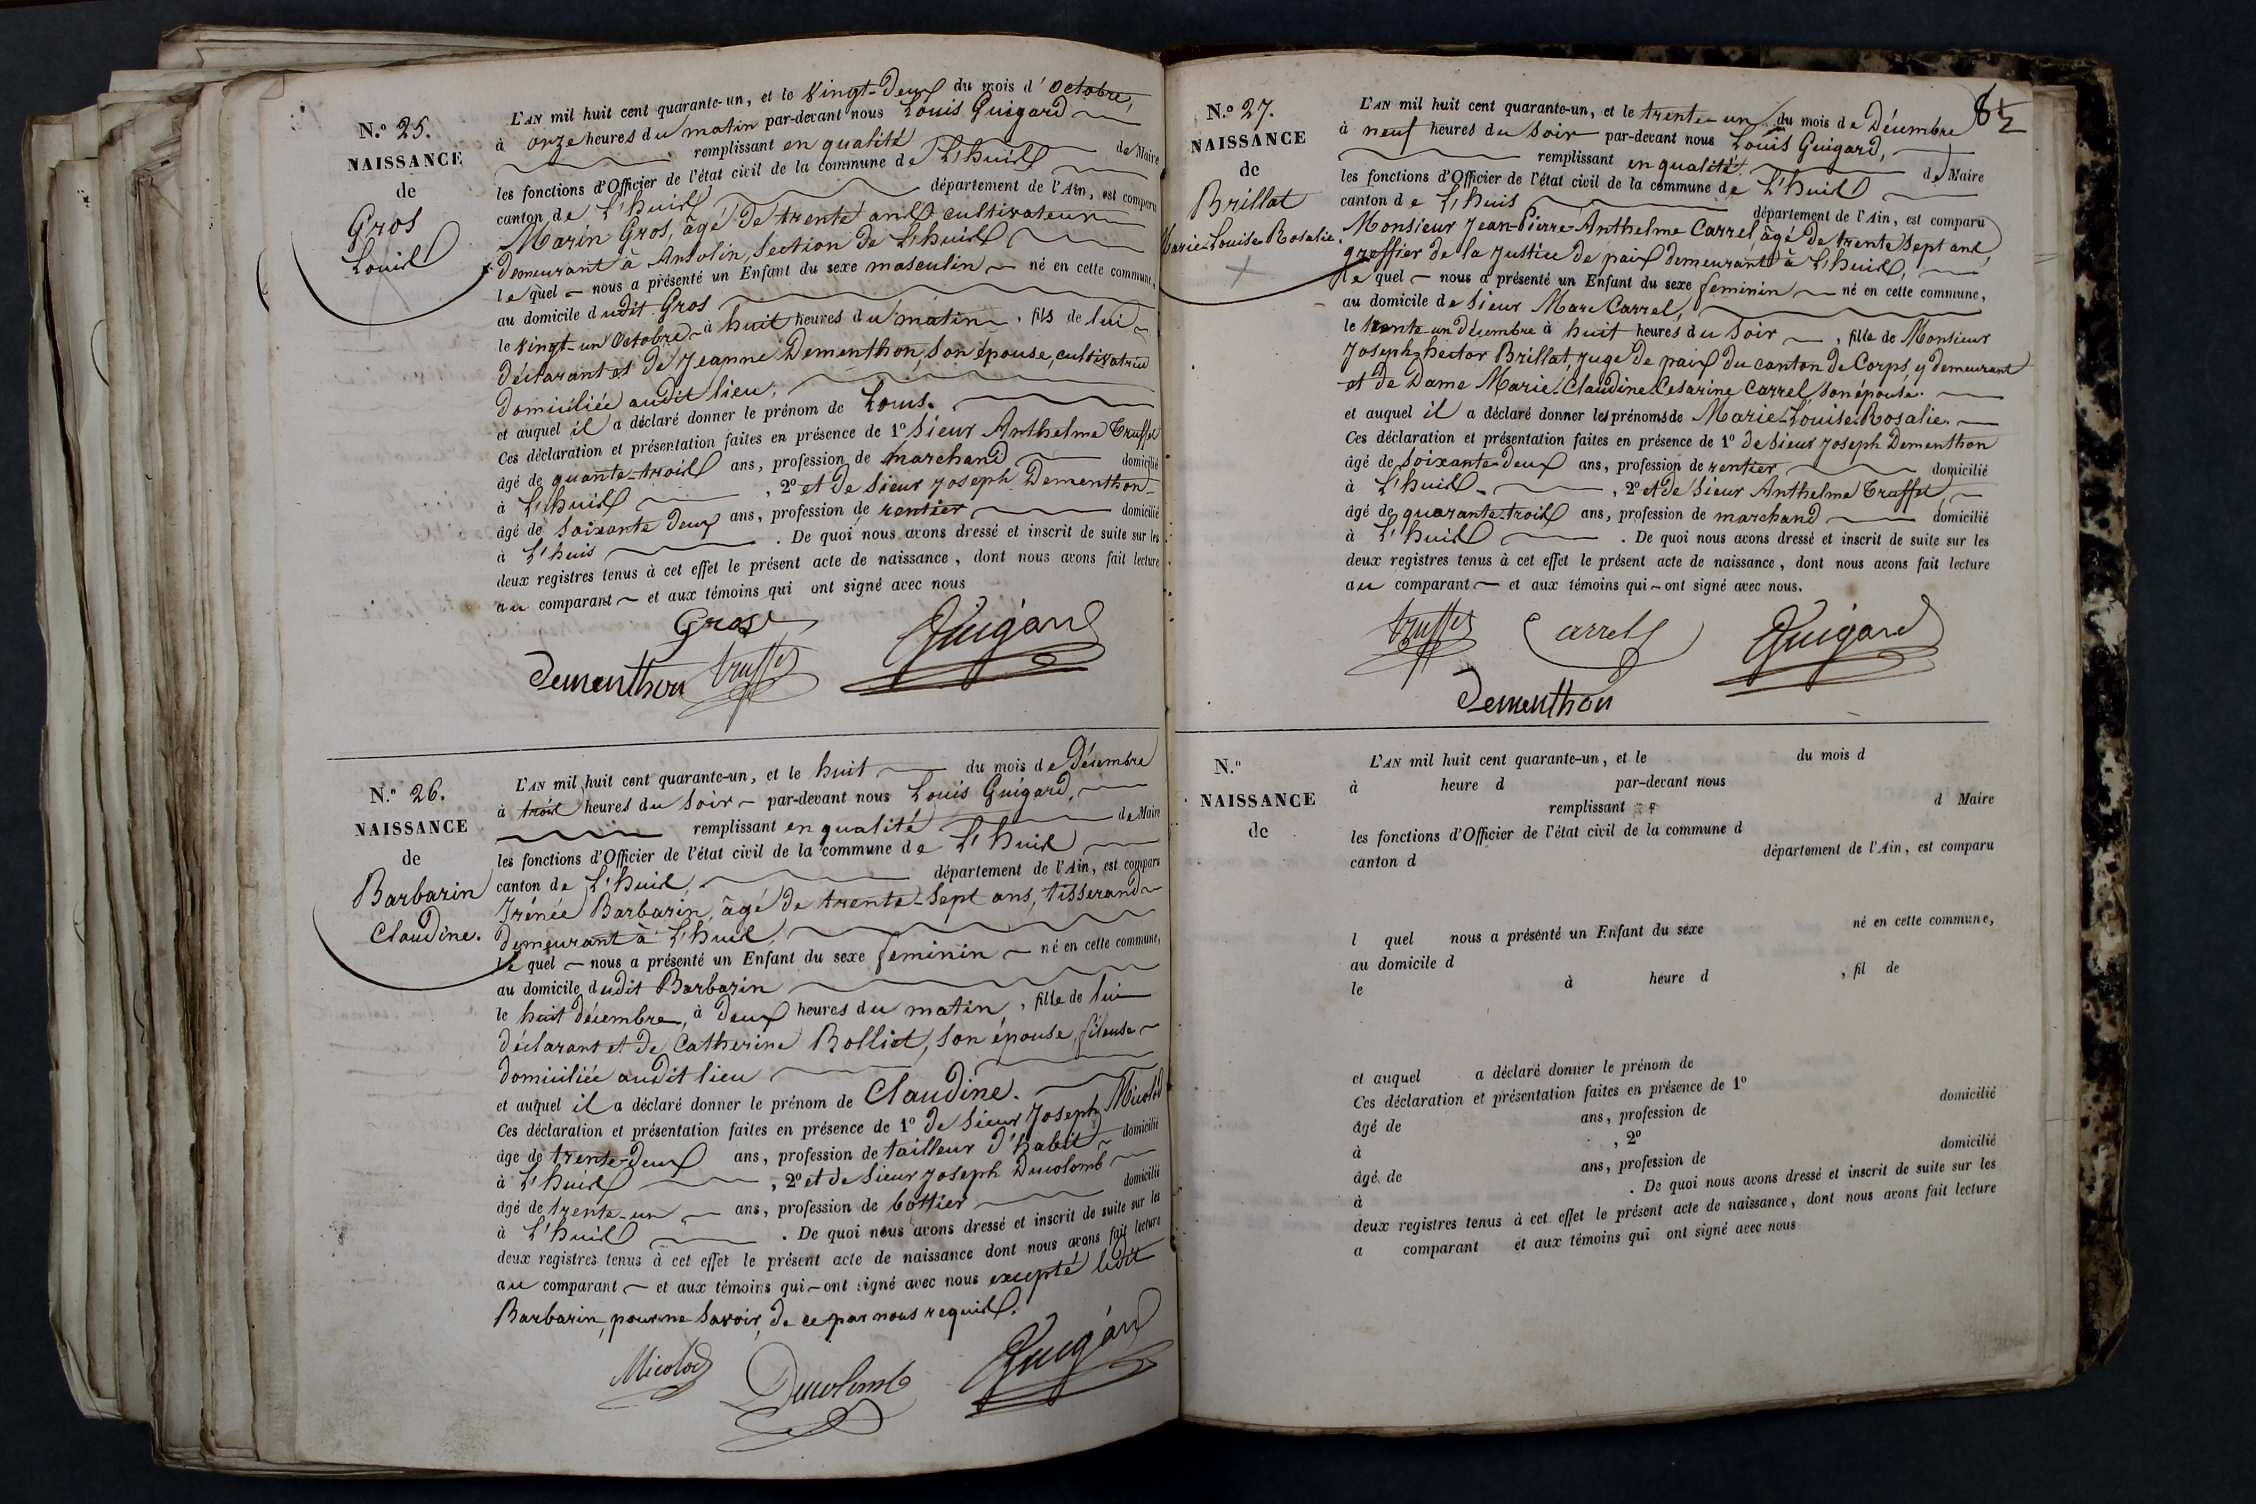 N.o 25.
NAISSANCE
de
Gros
Louis
L'AN mil huit cent quarante-un, et le vingt-deux du mois d'octobre,
à onze heures du matin par-devant nous Louis Guigard
remplissant en qualité de Maire
les fonctions d'Officier de l'état civil de la commune de L'huis
canton de L'huis département de l'Ain, est comparu
Marin Gros, âgé de trente ans cultivateur
demeurant à Ansolin, section de L'huis
lequel nous a présenté un Enfant du sexe masculin né en cette commune,
au domicile dudit Gros
le vingt-un octobre à huit heures du matin, fils de lui
déclarant et de Jeanne Dementhon, son épouse, cultivatrice
domiciliée audit lieu.
et auquel il a déclaré donner le prénom de Louis.
Ces déclaration et présentation faites en présence de 1o Sieur Anthelme Truffet
âgé de quante-trois ans, profession de marchand domicilié
à L'huis, 2o et de Sieur Joseph Dementhon
âgé de soixante deux ans, profession de rentier domicilié
à L'huis. De quoi nous avons dressé et inscrit de suite sur les
deux registres tenus à cet effet le présent acte de naissance, dont nous avons fait lecture
au comparant et aux témoins qui ont signé avec nous
Gros
Guigard
Dementhon truffet
N.o 26.
NAISSANCE
de
Barbarin
Claudine.
L'AN mil huit cent quarante-un, et le huit du mois de Décembre
à trois heures du soir par-devant nous Louis Guigard,
remplissant en qualité de Maire
les fonctions d'Officier de l'état civil de la commune de L'huis
canton de L'huis, département de l'Ain, est comparu
Irénée Barbarin, âgé de trente-sept ans, tisserand
demeurant à L'huis,
lequel nous a présenté un Enfant du sexe feminin né en cette commune,
au domicile dudit Barbarin
le huit décembre, à deux heures du matin, fille de lui
déclarant et de Catherine Rolliet, son épouse, fileuse
domiciliée audit lieu
et auquel il a déclaré donner le prénom de Claudine.
Ces déclaration et présentation faites en présence de 1o de Sieur Joseph Micolod
âgé de trente-deux ans, profession de tailleur d'habit domicilié
à L'huis, 2o et de Sieur Joseph Ducolomb
âgé de trente-un ans, profession de bottier domicilié
à L'huis. De quoi nous avons dressé et inscrit de suite sur les
deux registres tenus à cet effet le présent acte de naissance dont nous avons fait lecture
au comparant et aux témoins qui ont signé avec nous excepté ledit
Barbarin, pour ne savoir, de ce par nous requis.
Micolod
Ducolomb
Guigard
8 1/2
N.o 27.
NAISSANCE
de
Brillat
Marie-Louise-Rosalie.
L'AN mil huit cent quarante-un, et le trente-un du mois de Décembre
à neuf heures du soir par-devant nous Louis Guigard,
remplissant en qualité de Maire
les fonctions d'Officier de l'état civil de la commune de L'huis
canton de L'huis département de l'Ain, est comparu
Monsieur Jean-Pierre-Anthelme Carrel, âgé de trente sept ans,
greffier de la justice de paix demeurant à L'huis,
lequel nous a présenté un Enfant du sexe feminin né en cette commune,
au domicile de Sieur Marc Carrel,
le trente-un décembre à huit heures du soir, fille de Monsieur
Joseph-hector Brillat, juge de paix du canton de Corps, y demeurant
et de Dame Marie-Claudine-Cesarine Carrel, son épouse.
et auquel il a déclaré donner les prénoms de Marie-Louise-Rosalie.
Ces déclaration et présentation faites en présence de 1o de Sieur Joseph Dementhon
âgé de soixante-deux ans, profession de rentier domicilié
à L'huis, 2o et de Sieur Anthelme Truffet,
âgé de quarante-trois ans, profession de marchand domicilié
à L'huis. De quoi nous avons dressé et inscrit de suite sur les
deux registres tenus à cet effet le présent acte de naissance, dont nous avons fait lecture
au comparant et aux témoins qui ont signé avec nous.
truffet Carrel Guigard
Dementhon
N.o
NAISSANCE
de
L'AN mil huit cent quarante-un, et le du mois d
à heure d par-devant nous
remplissant d Maire
les fonctions d'Officier de l'état civil de la commune d
canton d département de l'Ain, est comparu
l quel nous a présenté un Enfant du sexe né en cette commune,
au domicile d
le à heure d, fil de
et auquel a déclaré donner le prénom de
Ces déclaration et présentation faites en présence de 1o
âgé de ans, profession de domicilié
à, 2o
âgé de ans, profession de domicilié
à. De quoi nous avons dressé et inscrit de suite sur les
deux registres tenus à cet effet le présent acte de naissance, dont nous avons fait lecture
a comparant et aux témoins qui ont signé avec nous